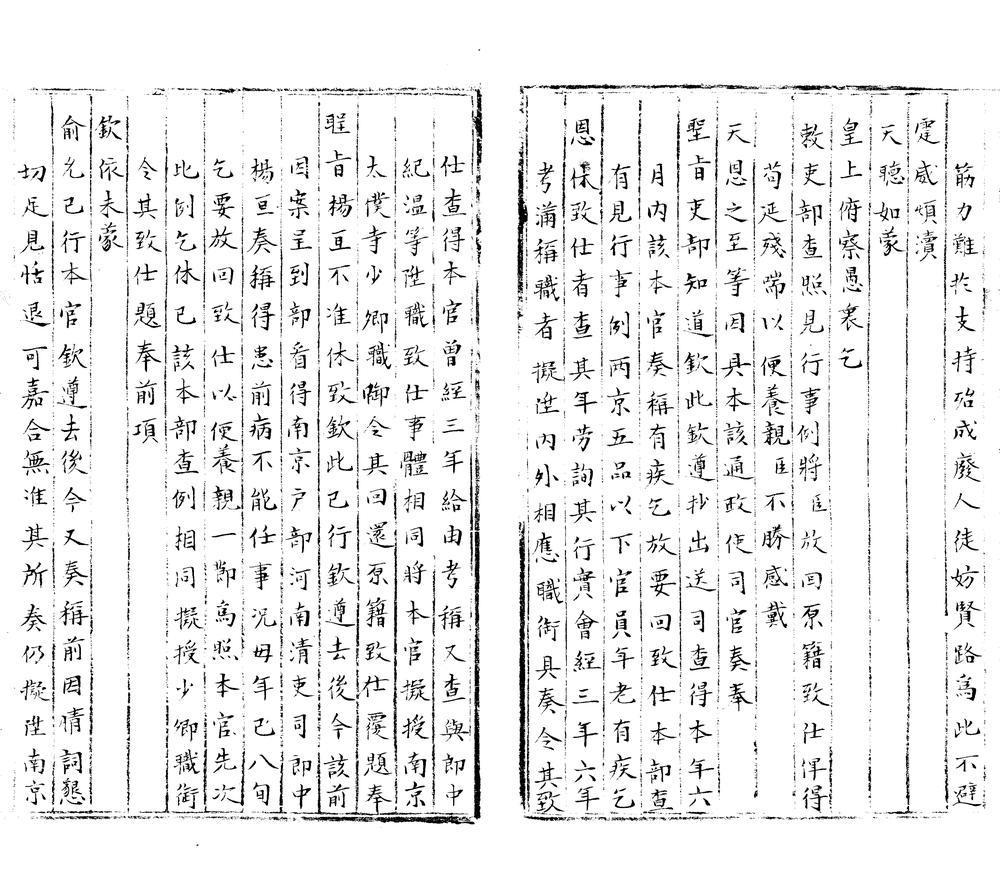 筋力難於支持殆成廢人徒妨賢路為此不避
霆威煩瀆
天聽如蒙
皇上俯察愚衷乞
敕吏部查照見行事例將臣放回原籍致仕俾得
苟延殘喘以便養親臣不勝感戴
天恩之至等因具本該通政使司官奏奉
聖旨吏部知道欽此欽遵抄出送司查得本年六
月內該本官奏稱有疾乞放要回致仕本部查
有見行事例兩京五品以下官員年老有疾乞
恩休致仕者查其年勞詢其行實會經三年六年
考滿稱職者擬陞內外相應職銜具奏令其致
仕查得本官曾經三年給由考稱又查與郎中
紀温等陞職致仕事體相同將本官擬授南京
太僕寺少卿職御令其回還原籍致仕覆題奉
聖旨楊亘不准休致欽此已行欽遵去後今該前
因案呈到部看得南京戶部河南清吏司郎中
楊亘奏稱得患前病不能任事況母年已八旬
乞要放回致仕以便養親一節為照本官先次
比例乞休已該本部查例相同擬授少卿職銜
令其致仕題奉前項
欽依未蒙
俞允已行本官欽遵去後今又奏稱前因情詞懇
切足見恬退可嘉合無准其所奏仍擬陞南京